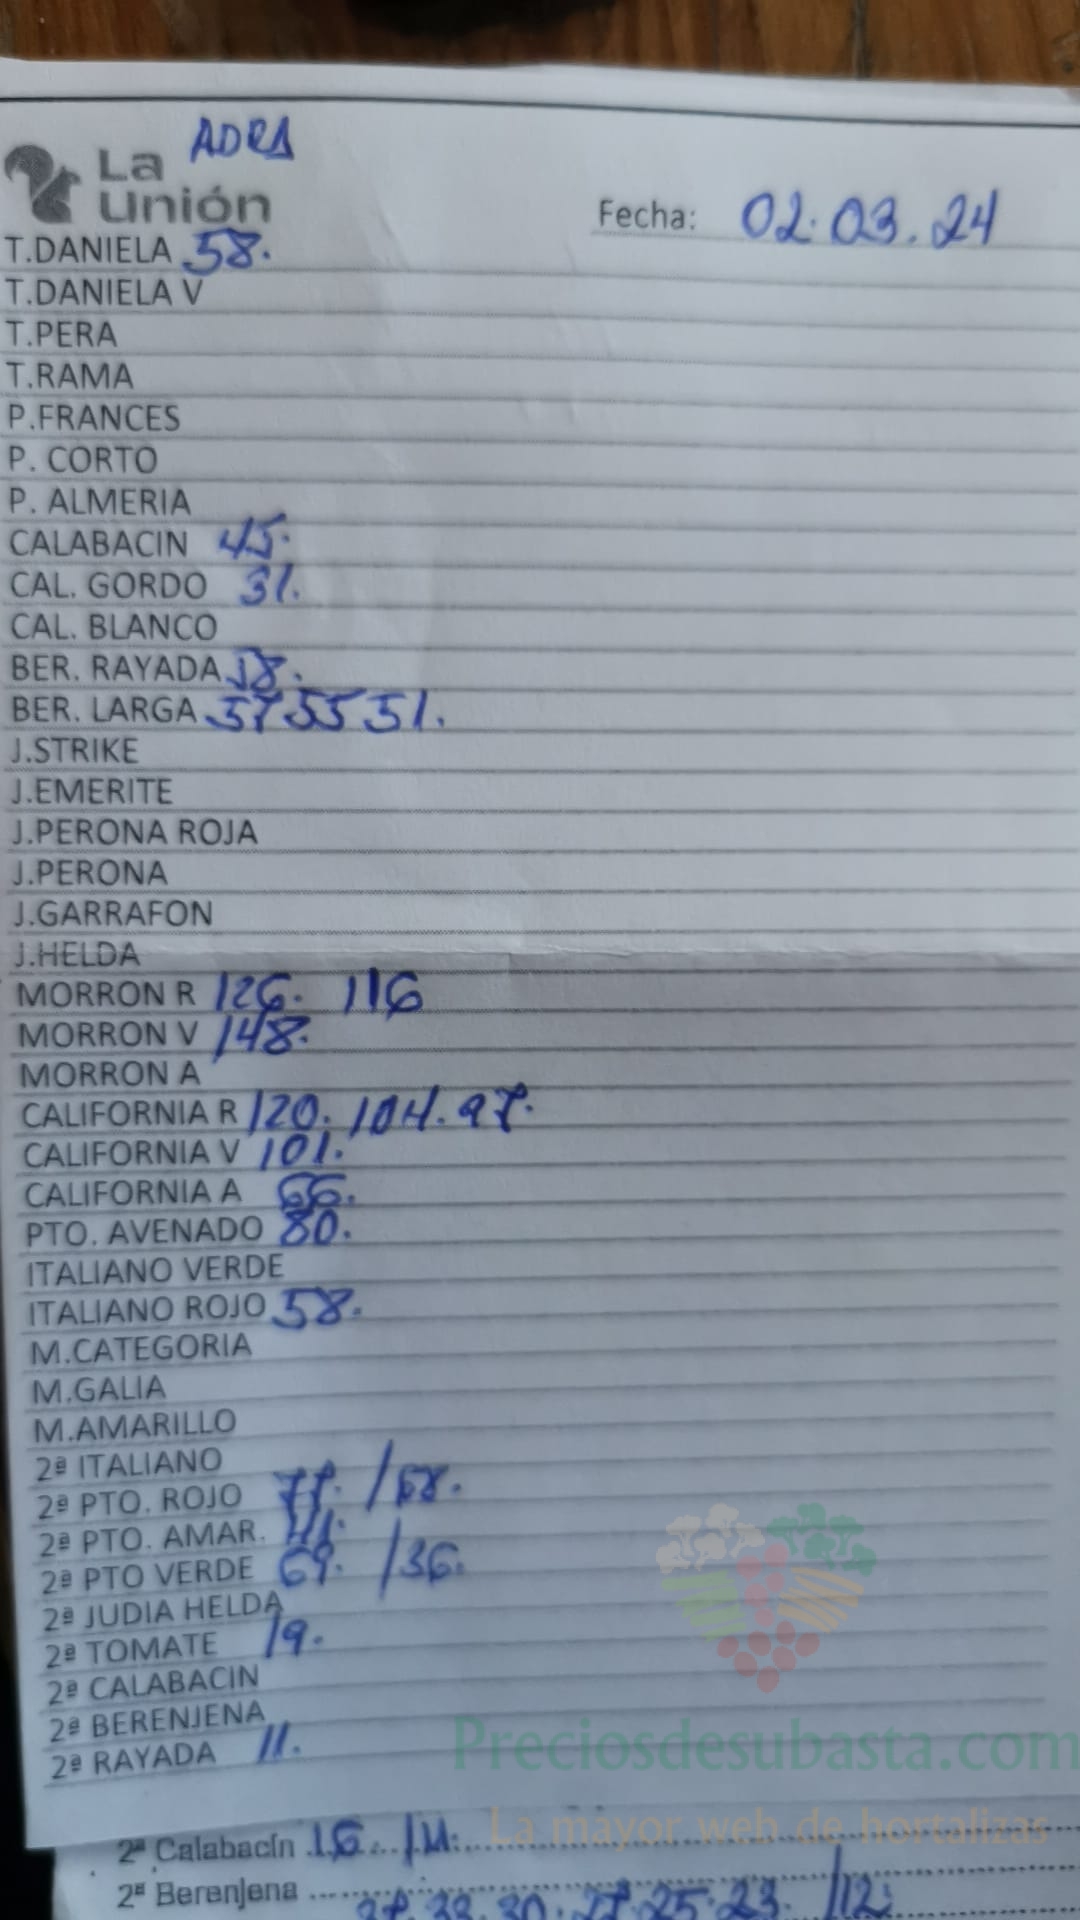 ADRA
La Unión
Fecha: 02.03.24
T.DANIELA 58.
T.DANIELA V
T.PERA
T.RAMA
P.FRANCES
P. CORTO
P. ALMERIA
CALABACIN 45.
CAL. GORDO 31.
CAL. BLANCO
BER. RAYADA 58.
BER. LARGA 57 55 51.
J.STRIKE
J.EMERITE
J.PERONA ROJA
J.PERONA
J.GARRAFON
J.HELDA
MORRON R 126. 116
MORRON V 148.
MORRON A
CALIFORNIA R 120. 104. 97.
CALIFORNIA V 101.
CALIFORNIA A 66.
PTO. AVENADO 80.
ITALIANO VERDE
ITALIANO ROJO 58.
M.CATEGORIA
M.GALIA
M.AMARILLO
2ª ITALIANO
2ª PTO. ROJO 77. /58.
2ª PTO. AMAR.
2ª PTO VERDE 69. /36.
2ª JUDIA HELDA
2ª TOMATE 19.
2ª CALABACIN
2ª BERENJENA
2ª RAYADA 11.
Preciosdesubasta.com
La mayor web de hortalizas
2ª Calabacín 16. /11.
2ª Berenjena 33. 30. 27. 25. 23. /12.